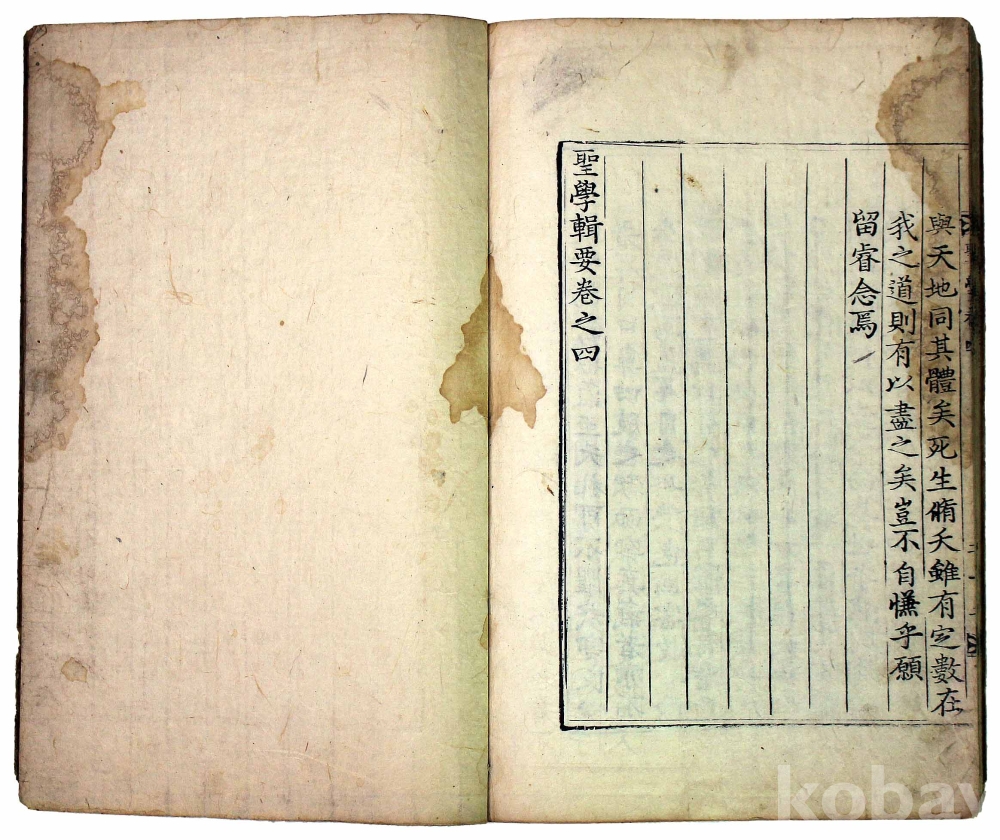 與天地同其體矣死生脩夭雖有定數在
我之道則有以盡之矣豈不自慊乎願
留睿念焉
聖學輯要卷之四
kobay